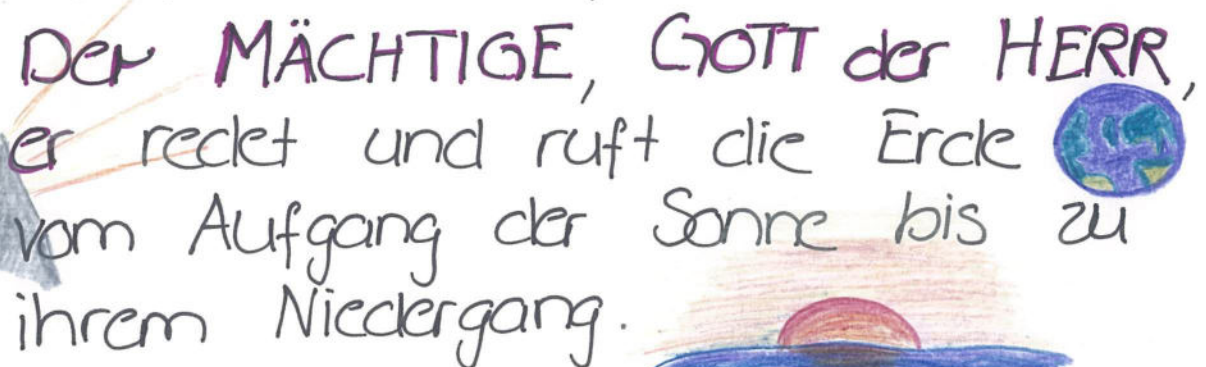 Der MÄCHTIGE, GOTT der HERR,
er redet und ruft die Erde
vom Aufgang der Sonne bis zu
ihrem Niedergang.